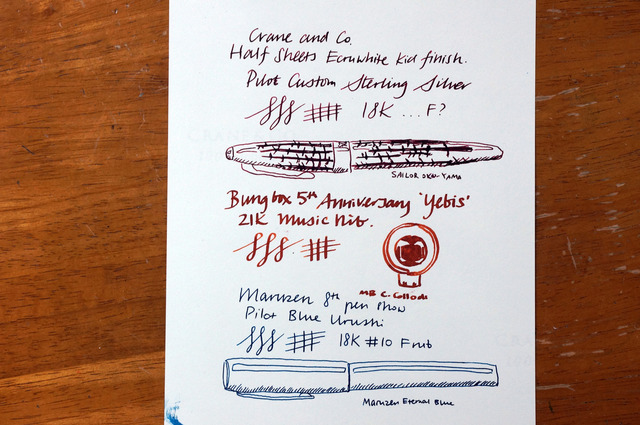 Crane and Co.
Half Sheets Ecruwhite Kid finish.
Pilot Custom Sterling Silver
18K ... F?
SAILOR OKU-YAMA
Bungbox 5th Anniversary 'Yebis'
21K Music Nib.
MB C. Collodi
Maruzen 8th pen show
Pilot Blue Urushi
18K #10 F nib
Maruzen Eternal Blue